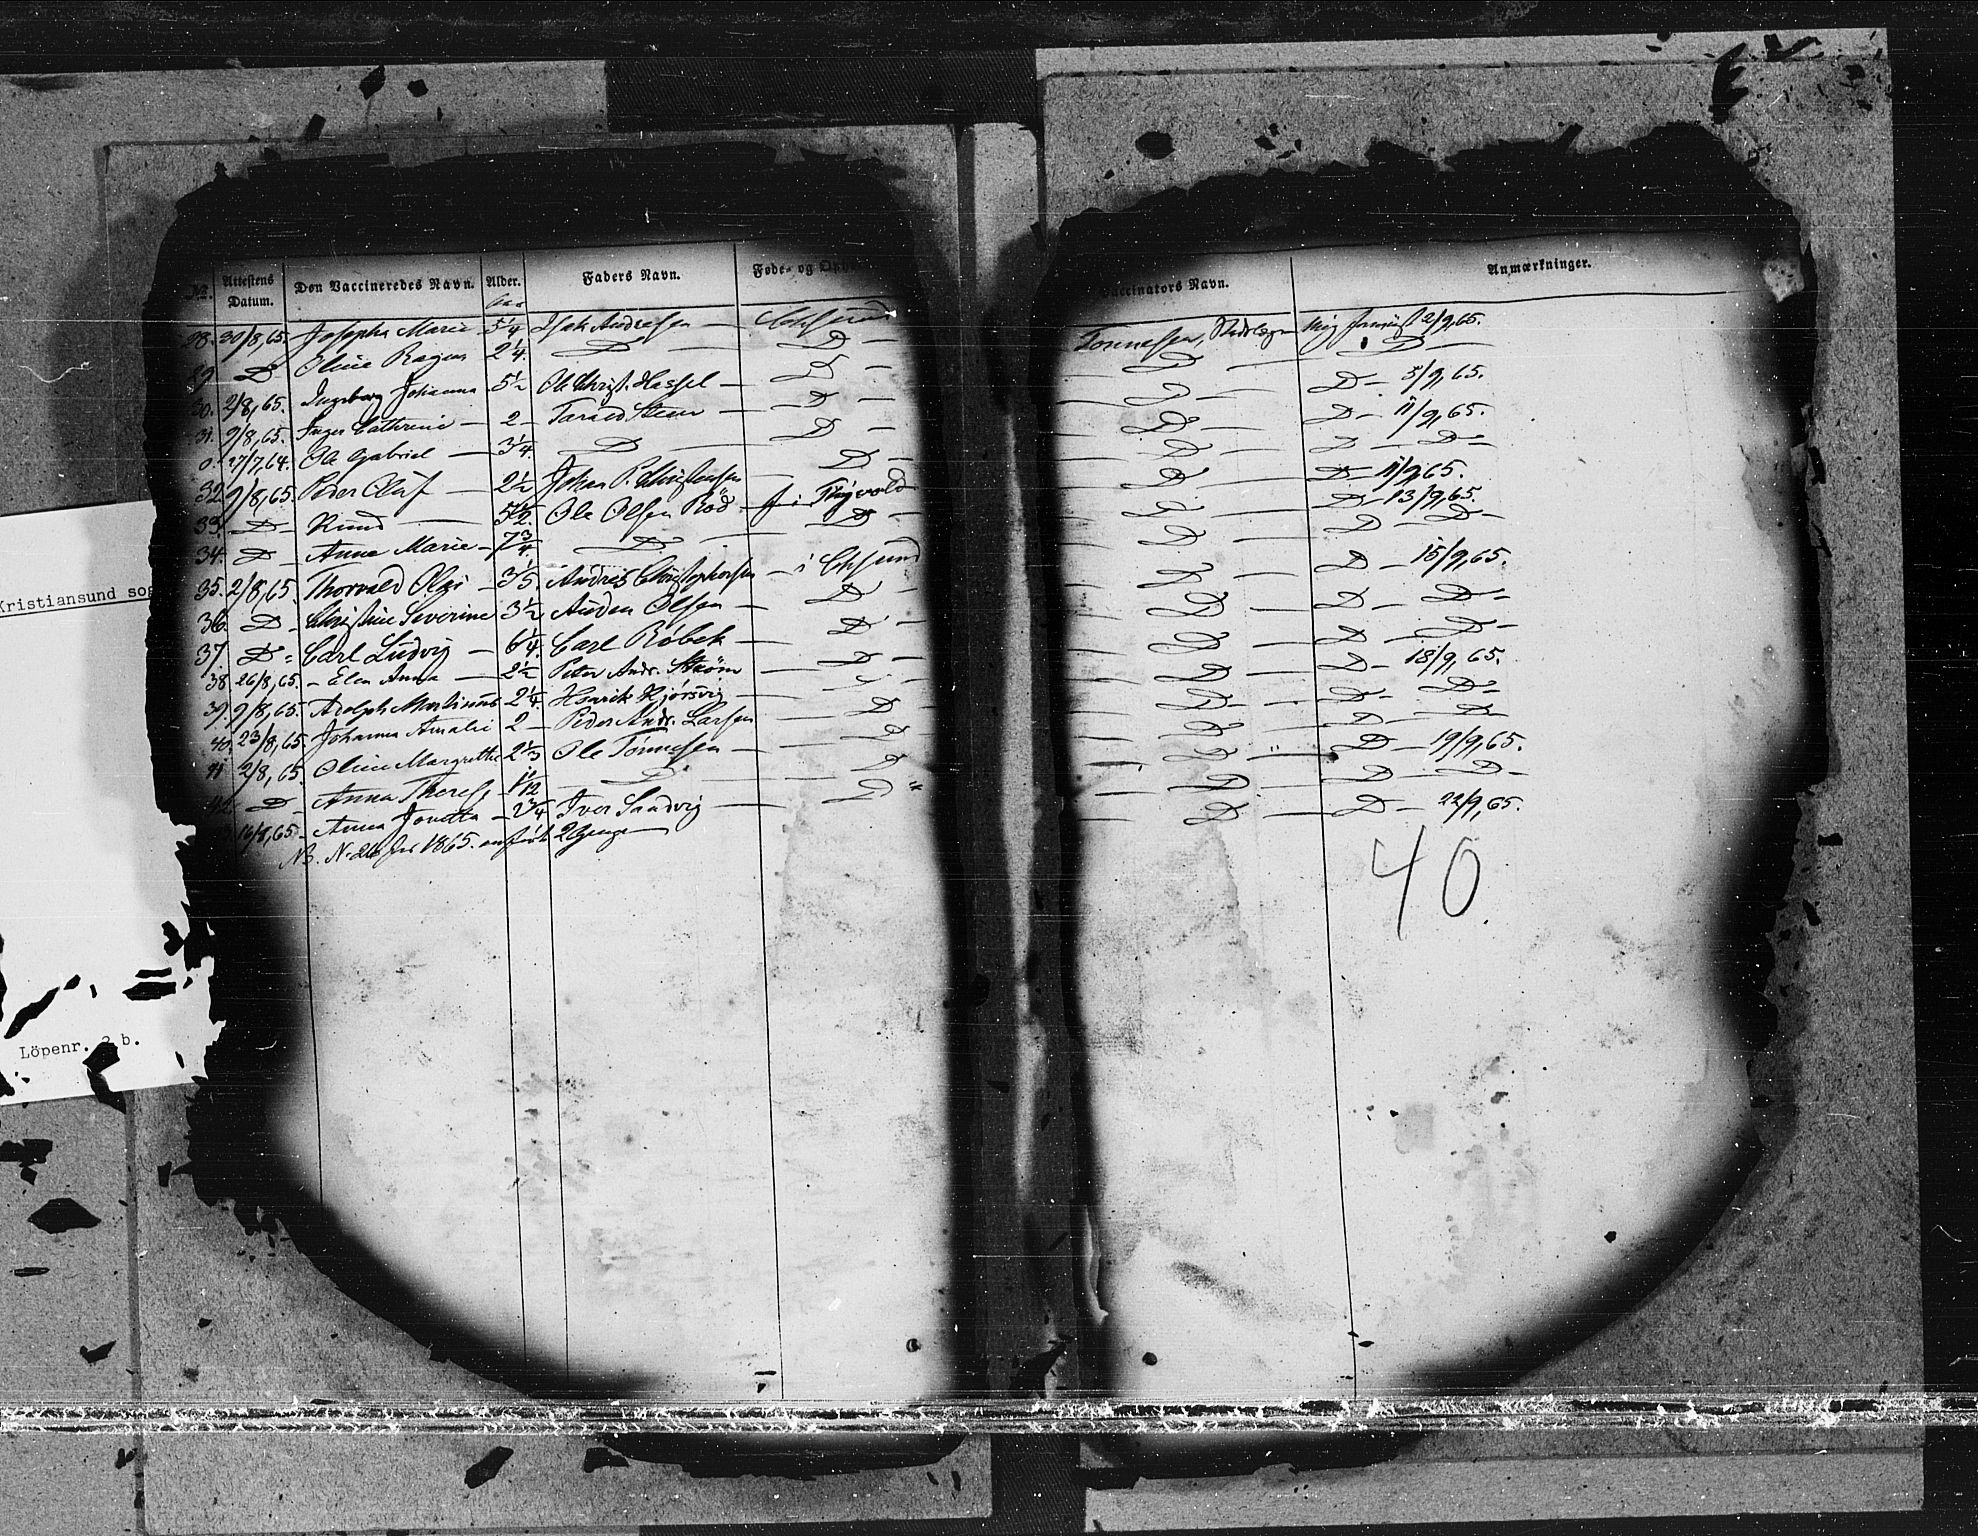 Kristiansund sog
Löpenr. 2 b.
No. Attestens Datum. Den Vaccineredes Navn. Alder. Faders Navn. Føde- og
28. 30/8,65. Josepha Marie 5 1/4 Isak Andresen —
29 D Oline 2 1/4. D — D —
30. 2/8,65. Ingeborg Johanna 5 1/2 Ole Christ. Hassel — D —
31. 9/8,65. Inger Cathrine — 2 — — D —
27/7,64. Ole Gabriel — 3 1/4. D — D —
32 9/8,65. Peder Oluf — 2 1/2 Johan P. Christensen — D —
33. D — Knud — 5 1/2. Ole Olsen Röd
34. D — Anna Marie — 7 3/4. D — D —
35. 2/8,65. Thorvald Olai — 3 1/5. Andreas Christophersen — i
36. D — Christine Severine 3 1/2 Auden Olsen — D —
37. D — Carl Ludvig — 6 1/4. Carl Röbek — D —
38 26/8,65. — Elen Anna — 2 1/2 Peter Andr. Strøm — D —
39. 9/8,65. Adolph Martinus 2 1/4 Henrik —
40. 23/8,65. Johanna Amalie 2 — Peder Andr. Larsen — D —
41 2/8,65. Oline Margrethe 2 1/3 Ole Tönnesen — D
42. D — Anna 1 1/12 — D — D
16/8,65. Anna 2 3/4 Iver Sandvig — D "
NB. No. 26 for 1865. anført 2 Gange
Vaccinators Navn. Anmærkninger.
Tönnesen, 2/9,65.
D — D —
D — D — 5/9,65.
D — D — 11/9,65.
D — D — D —
D — D — 11/9,65.
D — D — 13/9,65.
D — D — D —
D — D — 15/9,65.
D — D — D —
D — D — D —
D — D — 18/9,65.
D — D — D —
D — D — D —
D — " — D — 19/9,65.
D — D — D —
D — D — 22/9,65.
40.